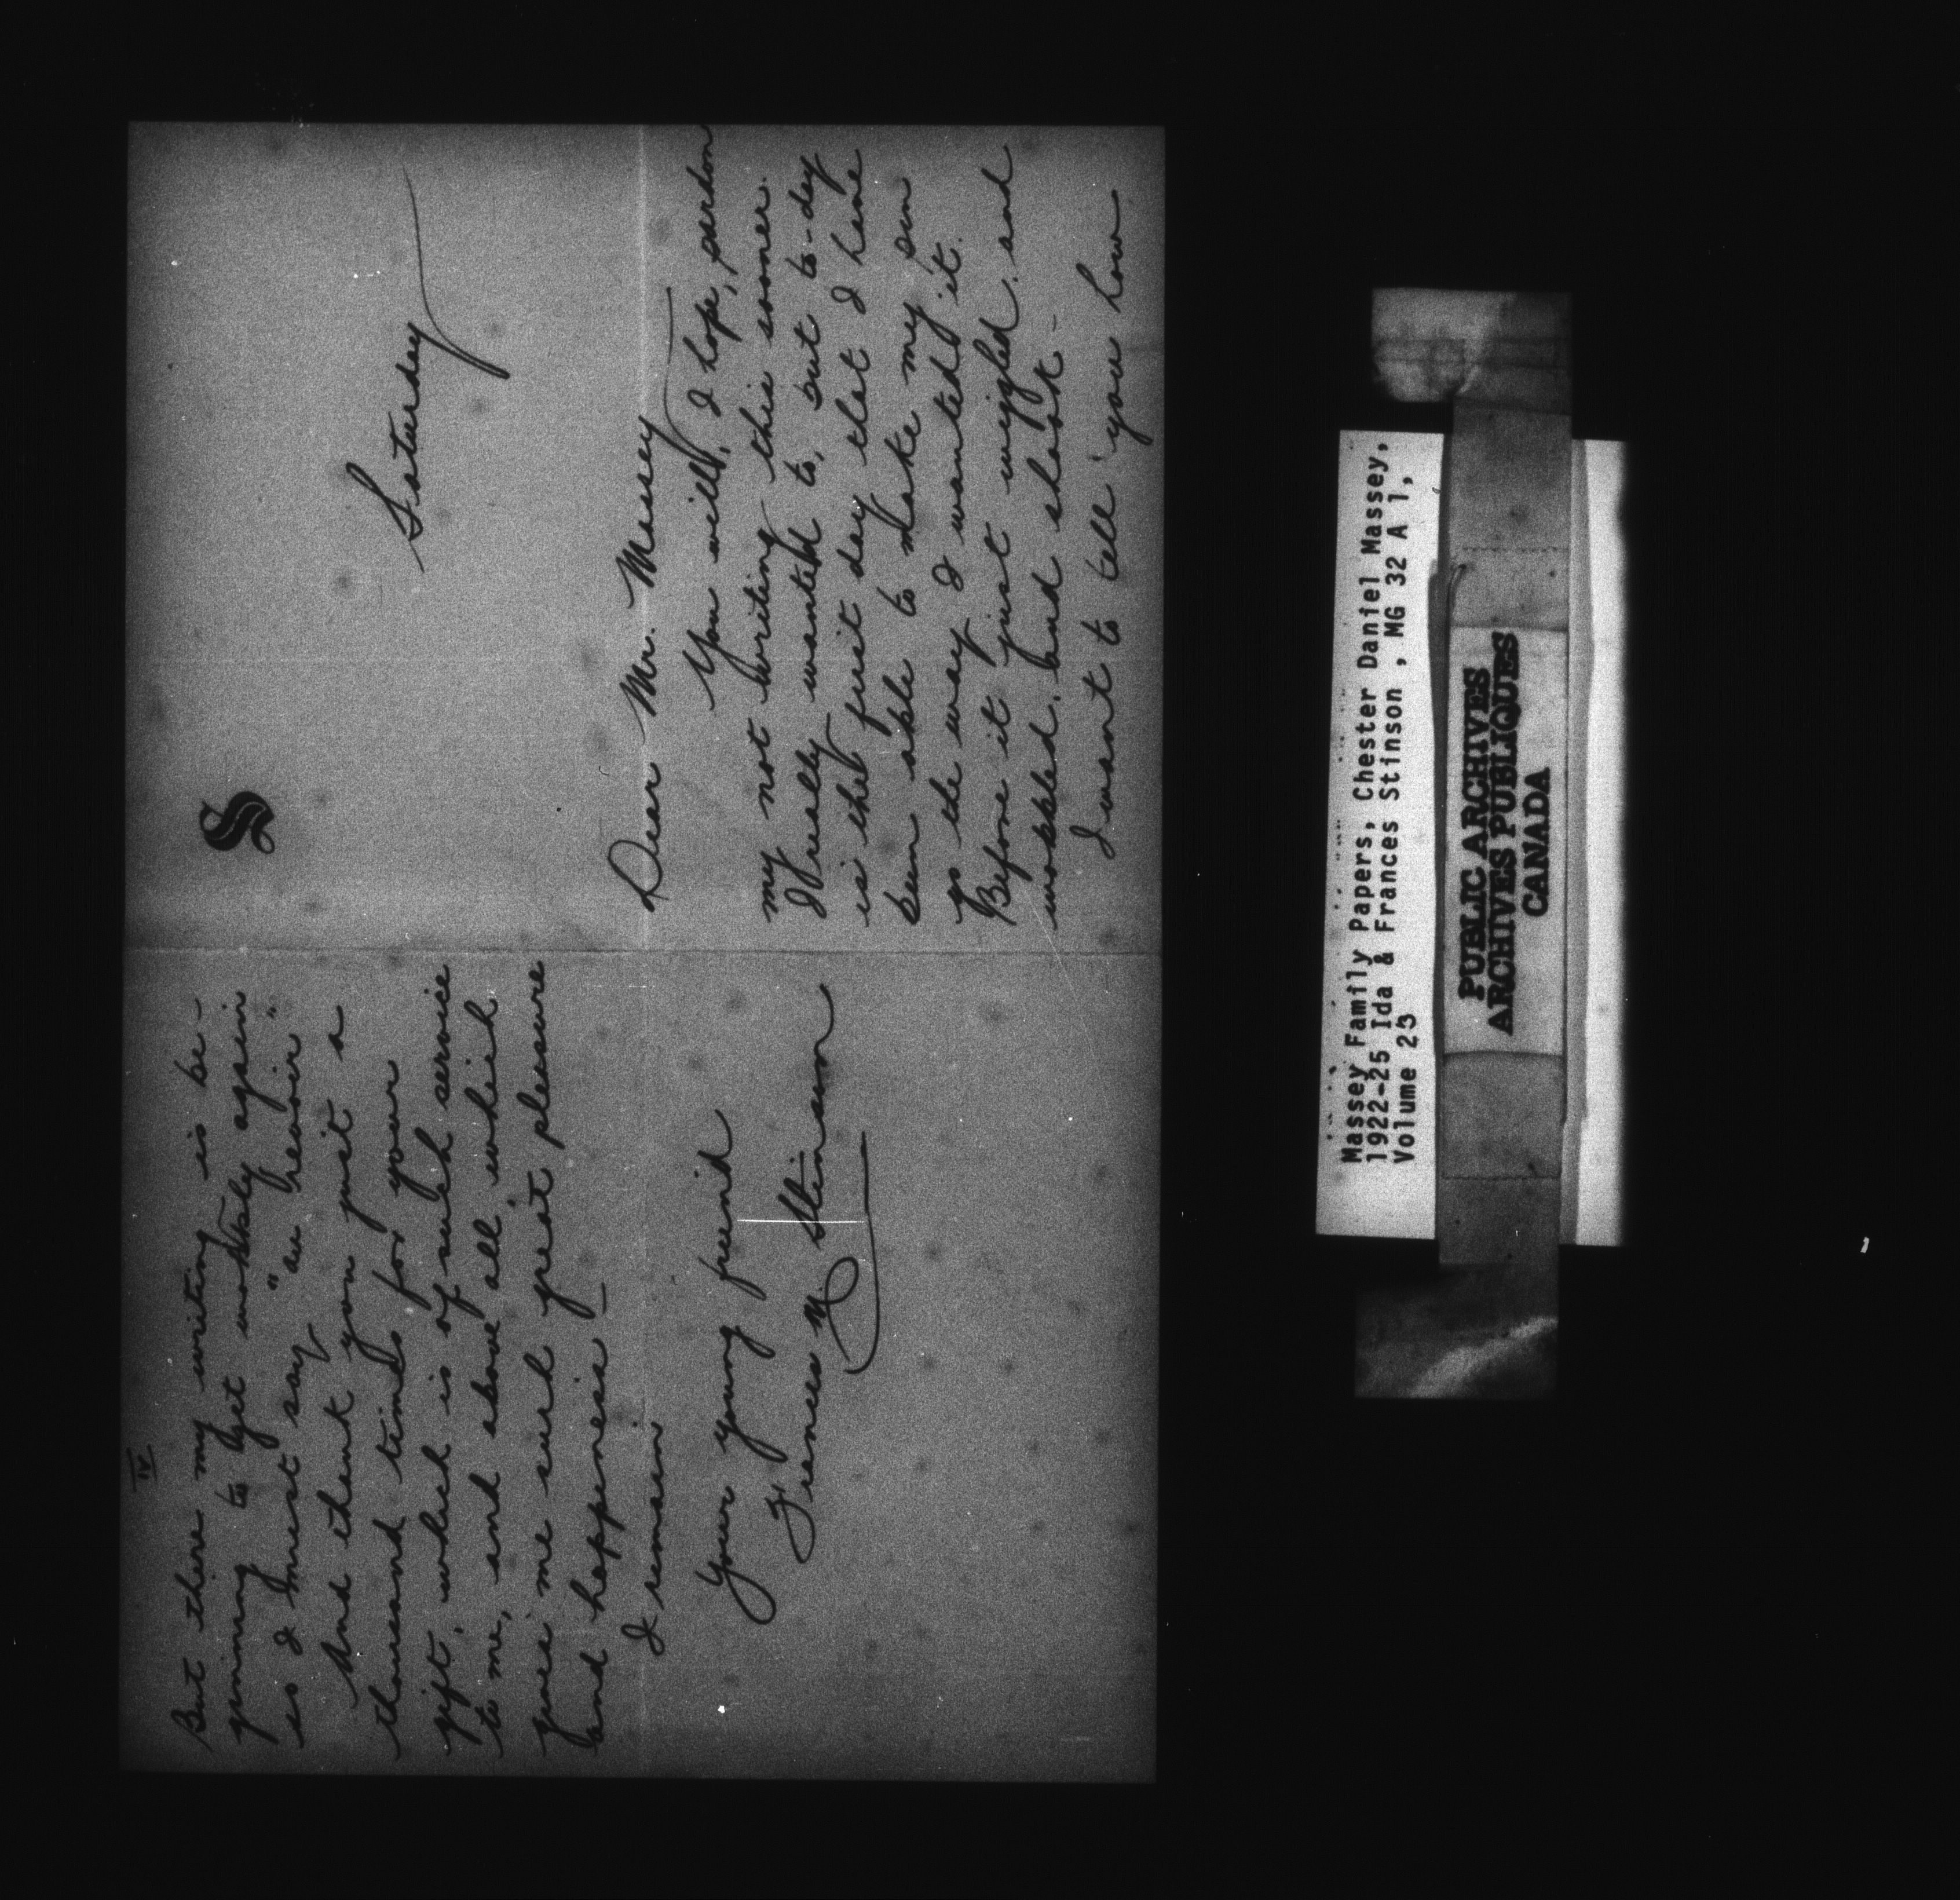 IV
But there my writing is be-
ginning to get wobbly again
so I must say "au revoir"
And thank you just a
thousand times for your
gift, which is of such service
to me, and above all which
gives me such great pleasure
and happiness –
I remain
Your young friend
Frances M. Stinson
S
Saturday
Dear Mr. Massey
You will, I hope, pardon
my not writing this sooner.
I really wanted to, but to-day
is the first day that I have
been able to make my pen
go the way I wanted it.
Before it just wiggled, and
wobbled, and shook –
I want to tell you how
Massey Family Papers, Chester Daniel Massey,
1922-25 Ida & Frances Stinson , MG 32 A 1,
Volume 23
PUBLIC ARCHIVES
ARCHIVES PUBLIQUES
CANADA